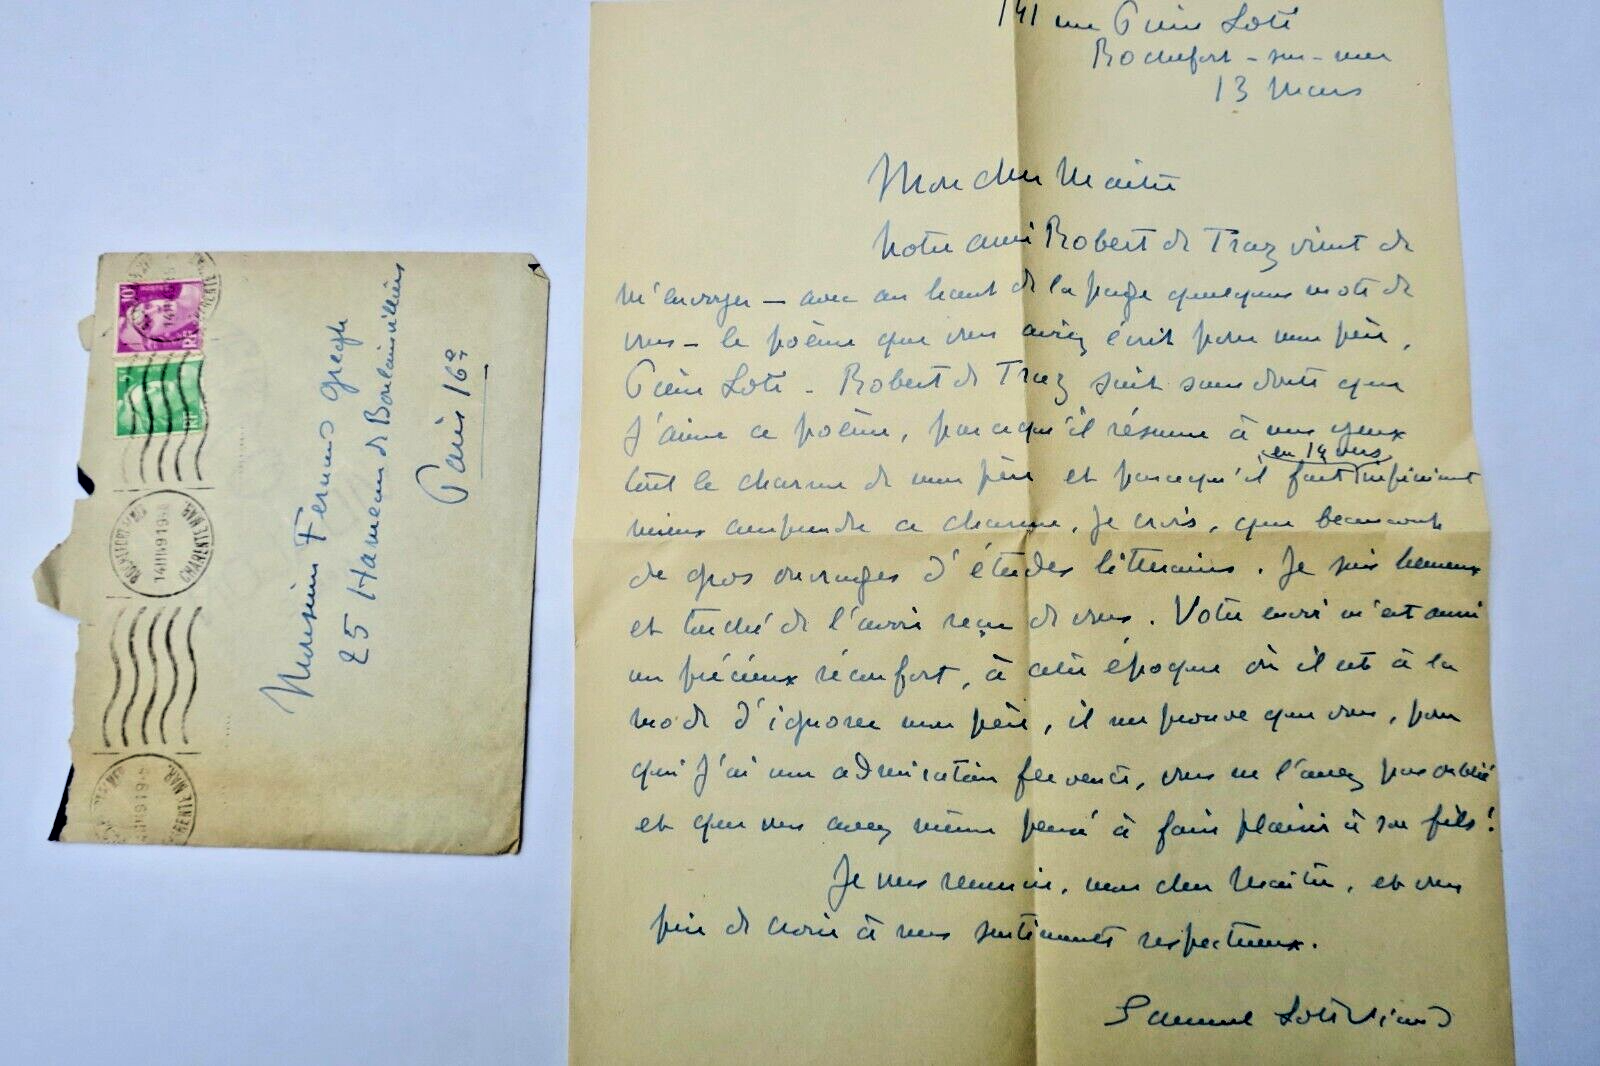 141 rue Pierre Loti
Rochefort-sur-mer
13 Mars
Mon cher Maître
Notre ami Robert de Traz vient de
m'envoyer — avec au haut de la page quelques mots de
vous — le poème que vous aviez écrit pour mon père,
Pierre Loti — Robert de Traz sait sans doute que
j'aime ce poème, parce qu'il résume à mes yeux
tout le charme de mon père et parce qu'il fait en 14 vers infiniment
mieux comprendre ce charme, je crois, que beaucoup
de gros ouvrages d'études littéraires. Je suis heureux
et touché de l'avoir reçu de vous. Votre envoi m'est aussi
un précieux réconfort, à cette époque où il est à la
mode d'ignorer mon père, il me prouve que vous, pour
qui j'ai une admiration fervente, vous ne l'avez pas oublié
et que vous avez même pensé à faire plaisir à son fils!
Je vous remercie, mon cher Maître, et vous
prie de croire à mes sentiments respectueux.
Samuel Loti Viaud
Monsieur Fernand Gregh
25 Hameau de Boulainvilliers
Paris 16e
ROCHEFORT
CHARENTE MAR.
10F
RF
RF